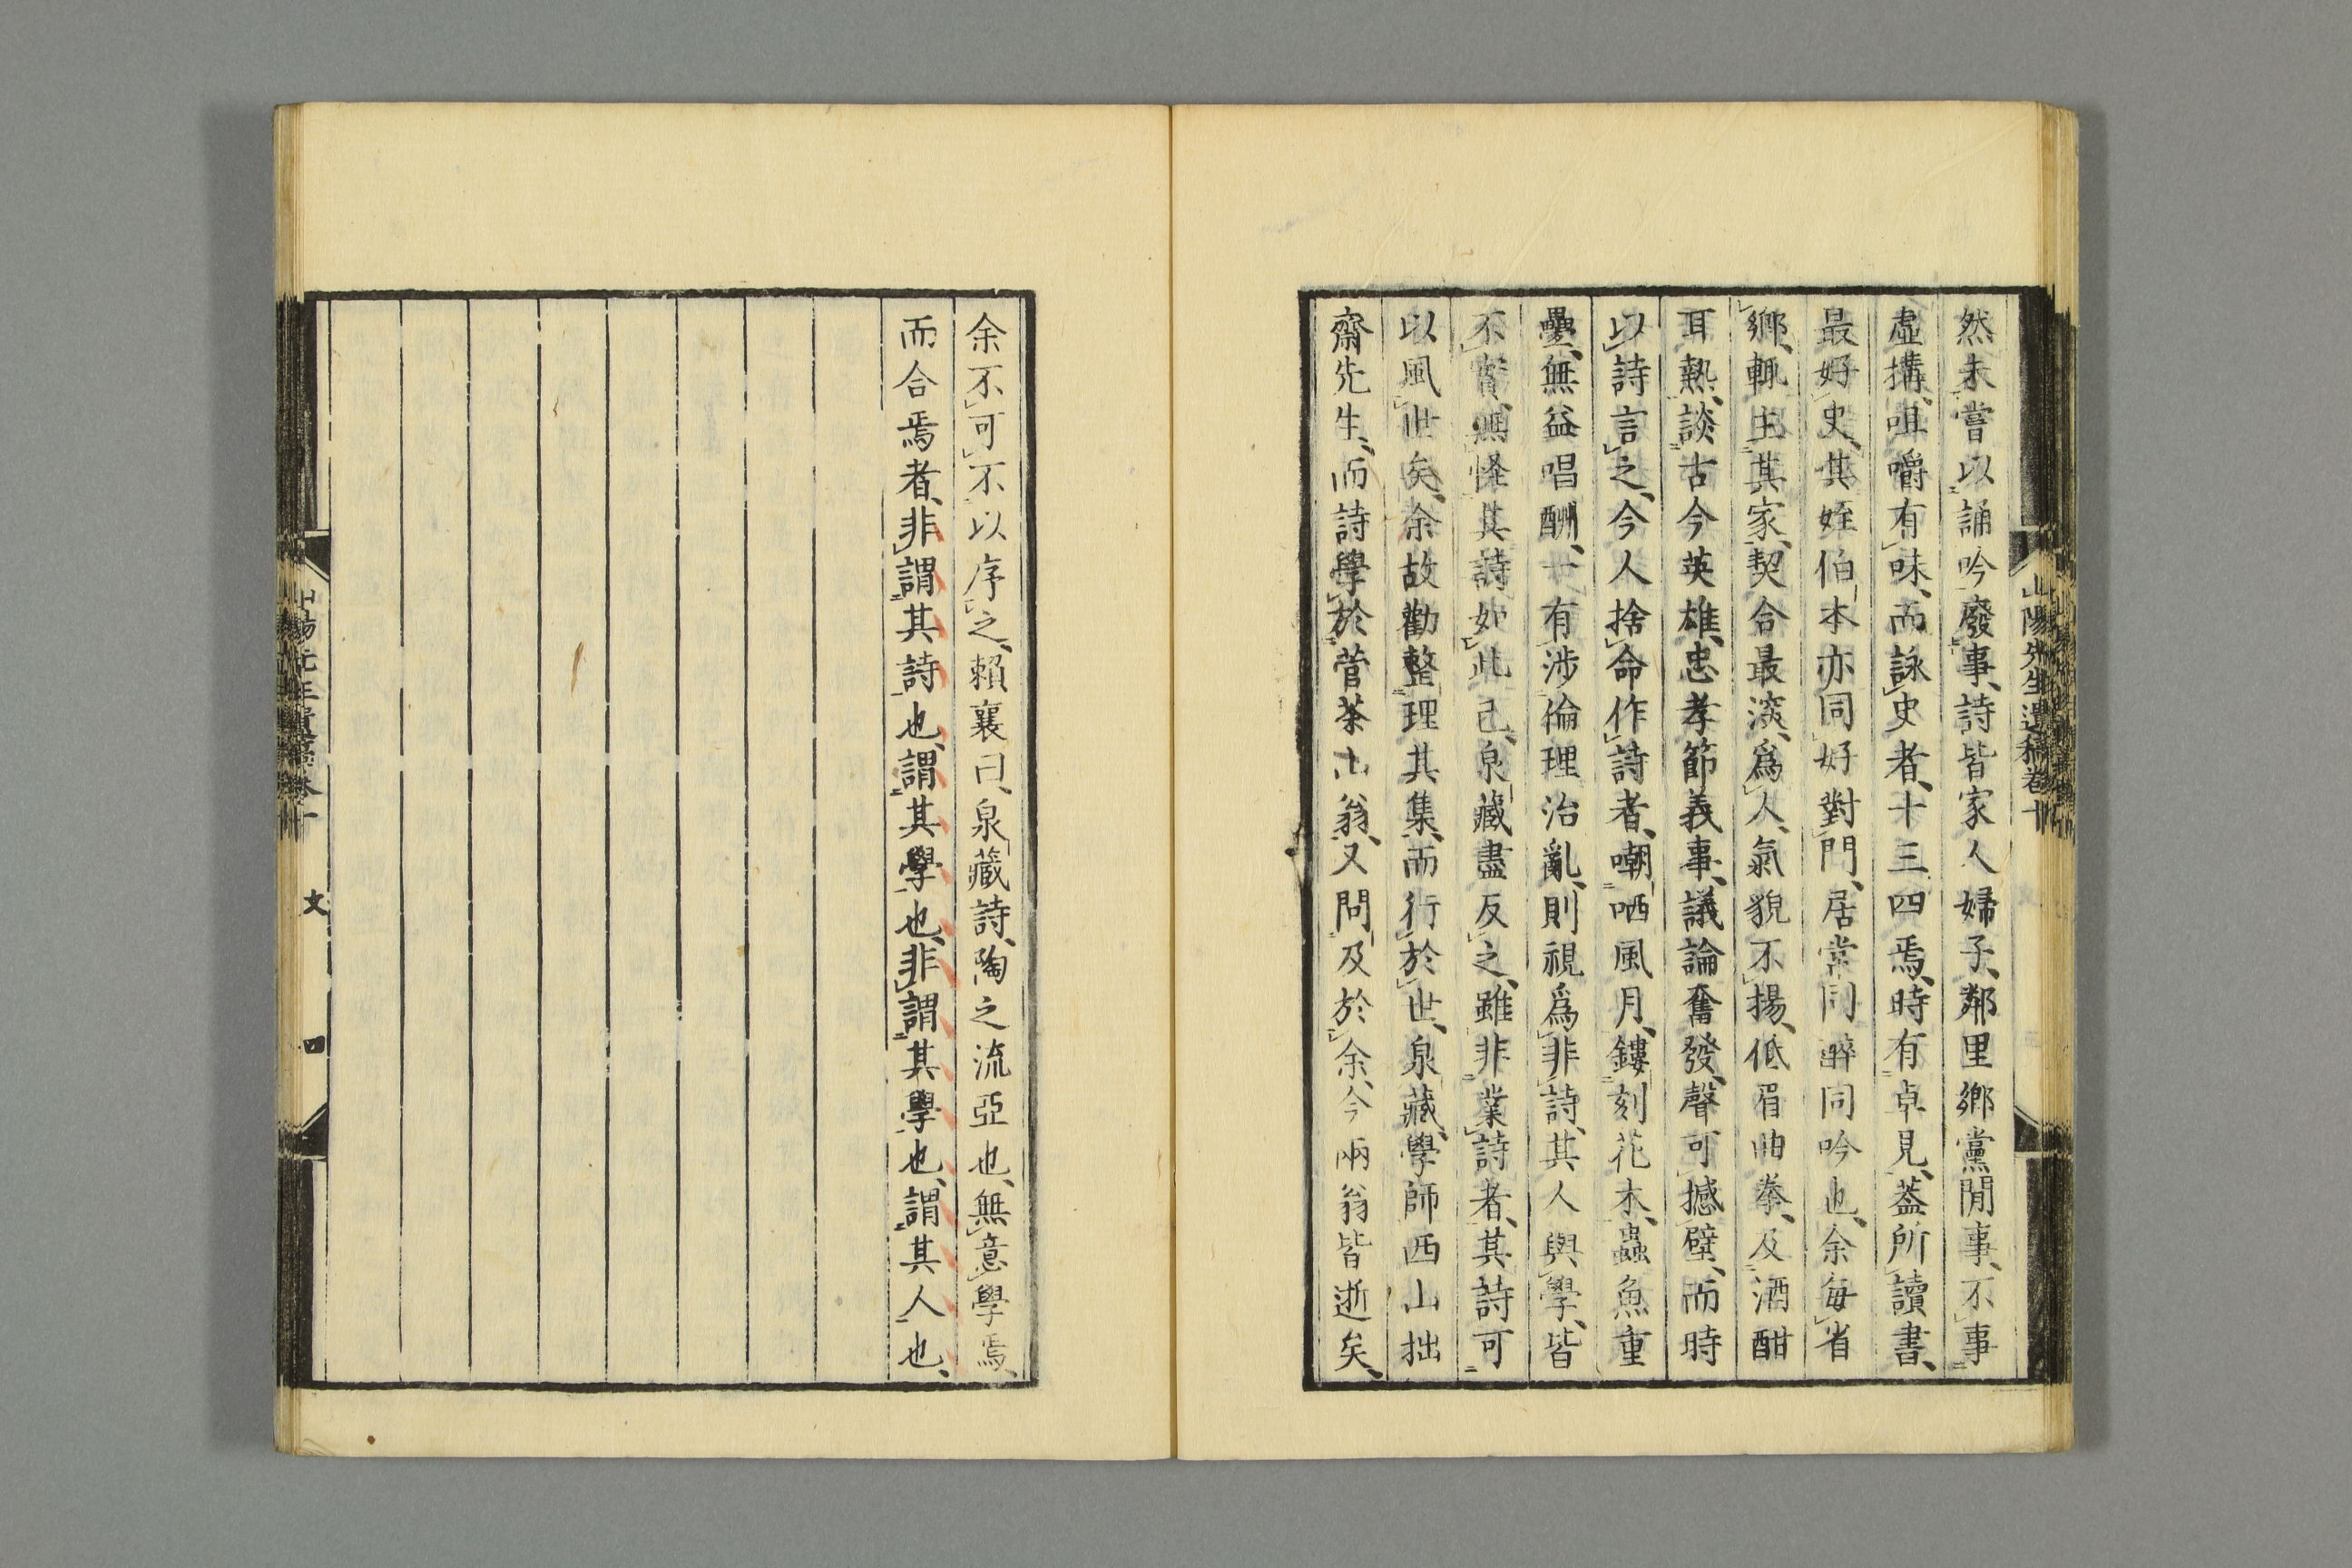 然未嘗以誦吟廢事、詩皆家人婦子、鄰里鄉黨閒事、不事
虛搆、咀嚼有味、而詠史者、十三四焉、時有卓見、蓋所讀書、
最好史、其姪伯本亦同好、對門居、常同醉同吟也、余每省
鄉、輒主其家、契合最深、爲人、氣貌不揚、低眉曲拳、及酒酣
耳熱、談古今英雄、忠孝節義事、議論奮發、聲可撼壁、而時
以詩言之、今人捨命作詩者、嘲哂風月、鏤刻花木、蟲魚重
疊、無益唱酬、一有涉倫理治亂、則視爲非詩、其人與學、皆
不實、無怪其詩如此已、泉藏盡反之、雖非業詩者、其詩可
以風世矣、余故勸整理其集、而行於世、泉藏、學師西山拙
齋先生、而詩學於菅茶山翁、又問及於余、今兩翁皆逝矣、
山陽先生遺稿卷十
余不可不以序之、賴襄曰、泉藏詩、陶之流亞也、無意學焉、
而合焉者、非謂其詩也、謂其學也、非謂其學也、謂其人也、
山陽先生遺稿卷十 文 四